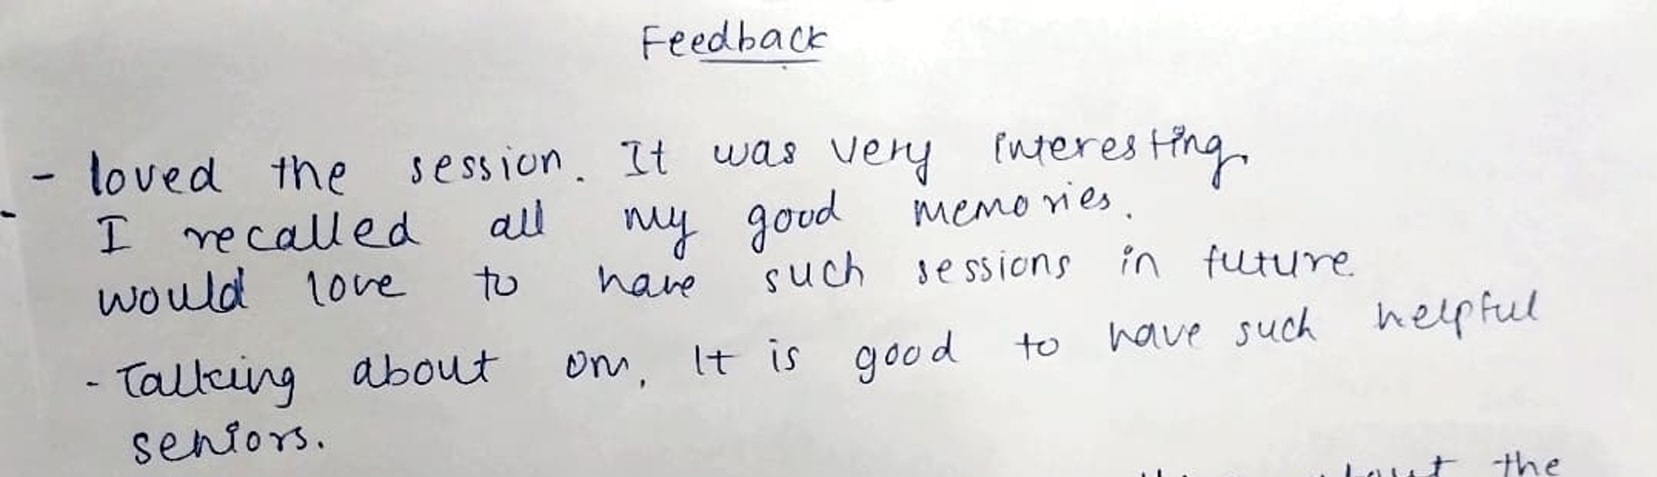 Feedback
- loved the session. It was very interesting.
I recalled all my good memories.
would love to have such sessions in future.
- Talking about om, It is good to have such helpful
seniors.
the